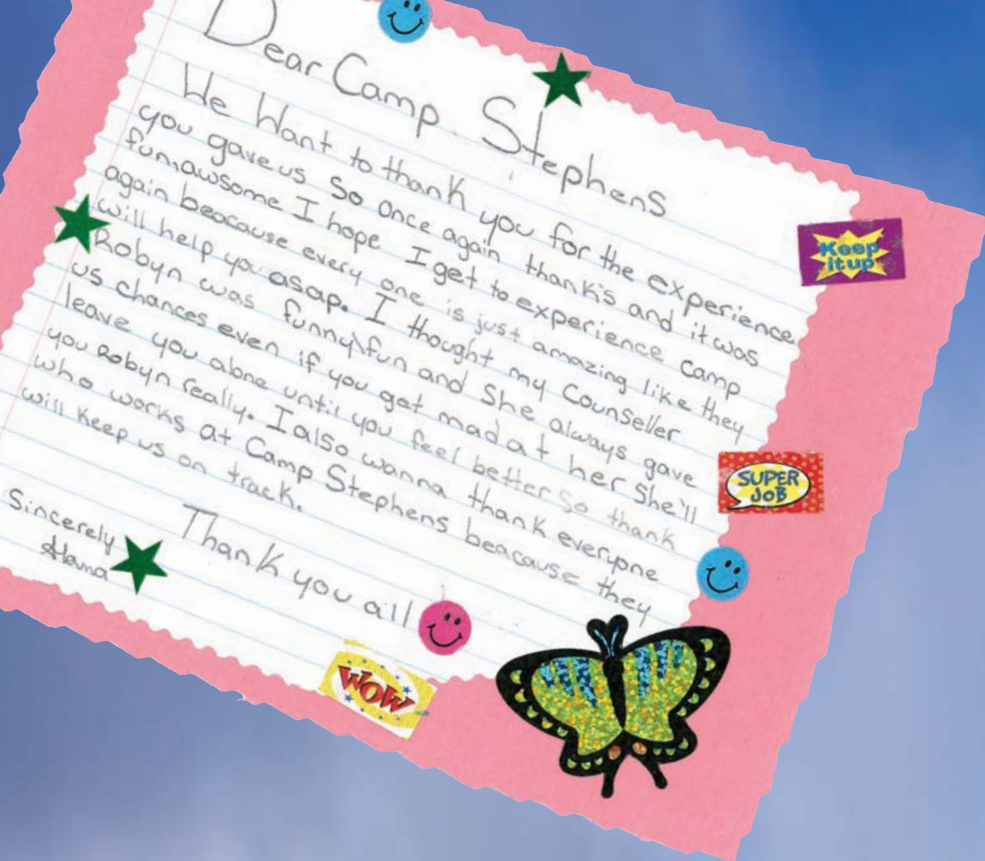 Dear Camp Stephens
We Want to thank you for the experience
you gave us So once again thank's and it was
fun,awsome I hope I get to experience camp
again beacause every one is just amazing like they
will help you asap. I thought my Counseller
Robyn was funny\fun and She always gave
us chances even if you get mad at her She'll
leave you alone until you feel better So thank
you Robyn really. I also wanna thank everyone
who works at Camp Stephens beacause they
will keep us on track.
Thank you all
Sincerely
Keep it up
SUPER JOB
WOW